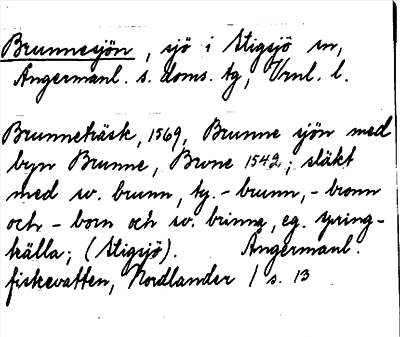 Brunnesjön, sjö i Stigsjö sn,
Ångermanl. s. doms. tg, Vrnl. l.
Brunneträsk, 1569, Brunne sjön med
byn Brunne, Brvne 1542; släkt
med sv. brunn, ty. -brunn, -bronn
och -born och sv. brinna, eg. spring-
källa; (Stigsjö). Ångermanl.
fiskevatten, Nordlander I s. 13